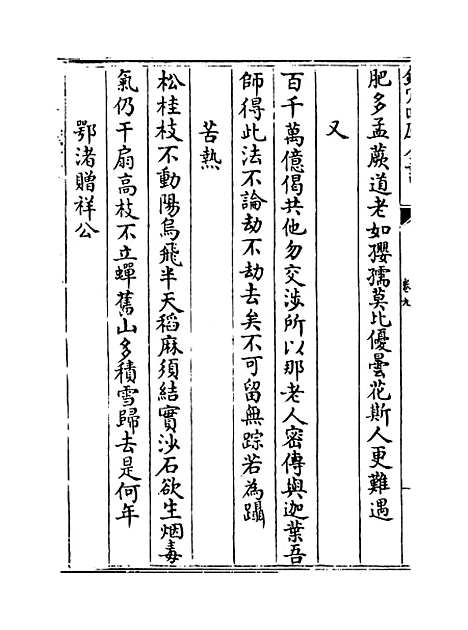 肥多孟蕨道老如玃孺莫比優曇花斯人更難遇
又
百千萬億偈共他勿交涉所以那老人密傳與迦葉吾
師得此法不論劫不劫去矣不可留無踪若為躡
苦熱
松桂枝不動陽烏飛半天稻麻須結實沙石欲生烟毒
氣仍干扇高枝不立蟬舊山多積雪歸去是何年
鄂渚贈祥公